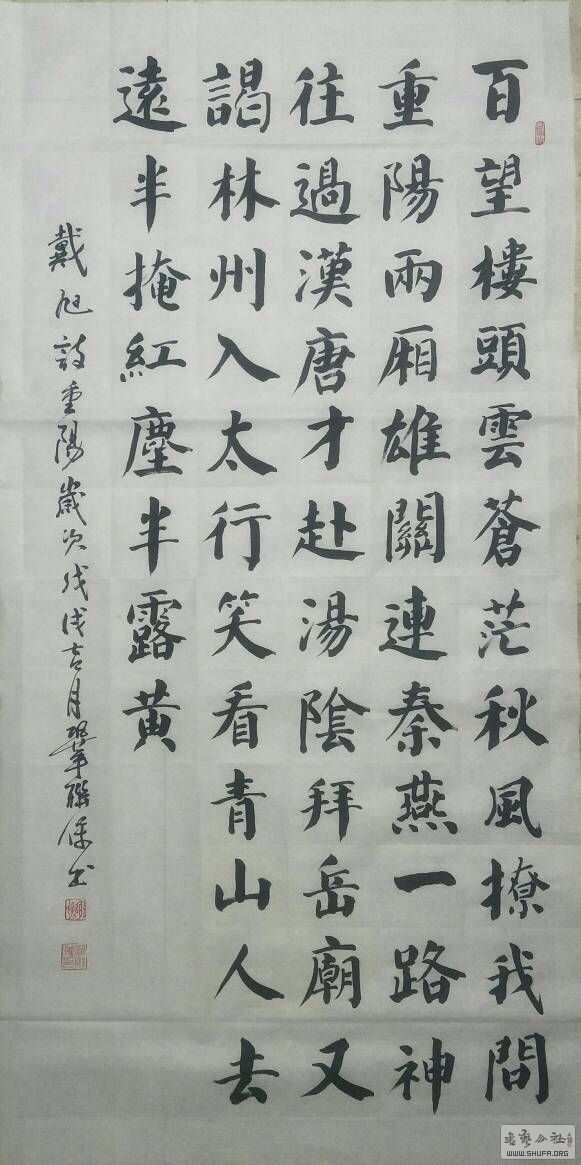 百望樓頭雲蒼茫秋風撩我問
重陽兩厢雄關連秦燕一路神
往過漢唐才赴湯陰拜岳廟又
謁林州入太行笑看青山人去
遠半掩紅塵半露黄
戴旭詩重陽歲次戊戌吉月翠聯保书
书艺公社
WWW.SHUFA.ORG